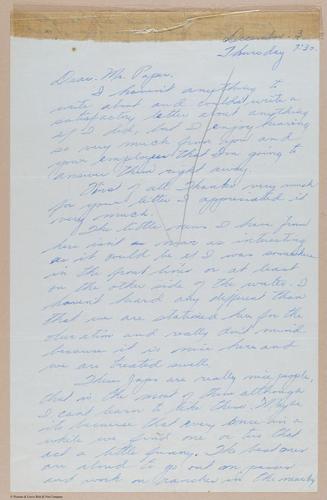 December 3
Thursday 7:30.
Dear Mr. Pape.
I haven't anything to
write about and couldn't write a
satisfactory letter about anything
if I did, but I enjoy hearing
so very much from you and
your employees that I'm going to
answer them right away.
First of all Thanks very much
for your letter I appreciated it
very much.
The little news I have from
here isn't near as interesting
as it would be if I was somewhere
in the front lines or at least
on the other side of the water. I
haven't heard any different than
that we are stationed here for the
duration and really don't mind
because it is nice here and
we are treated swell.
These Japs are really nice people,
that is the most of them although
I can't learn to like them. Maybe
its because that every once in a
while we find one or two that
act a little funny. The best ones
are aloud to go out on passes
and work on ranches in the nearby